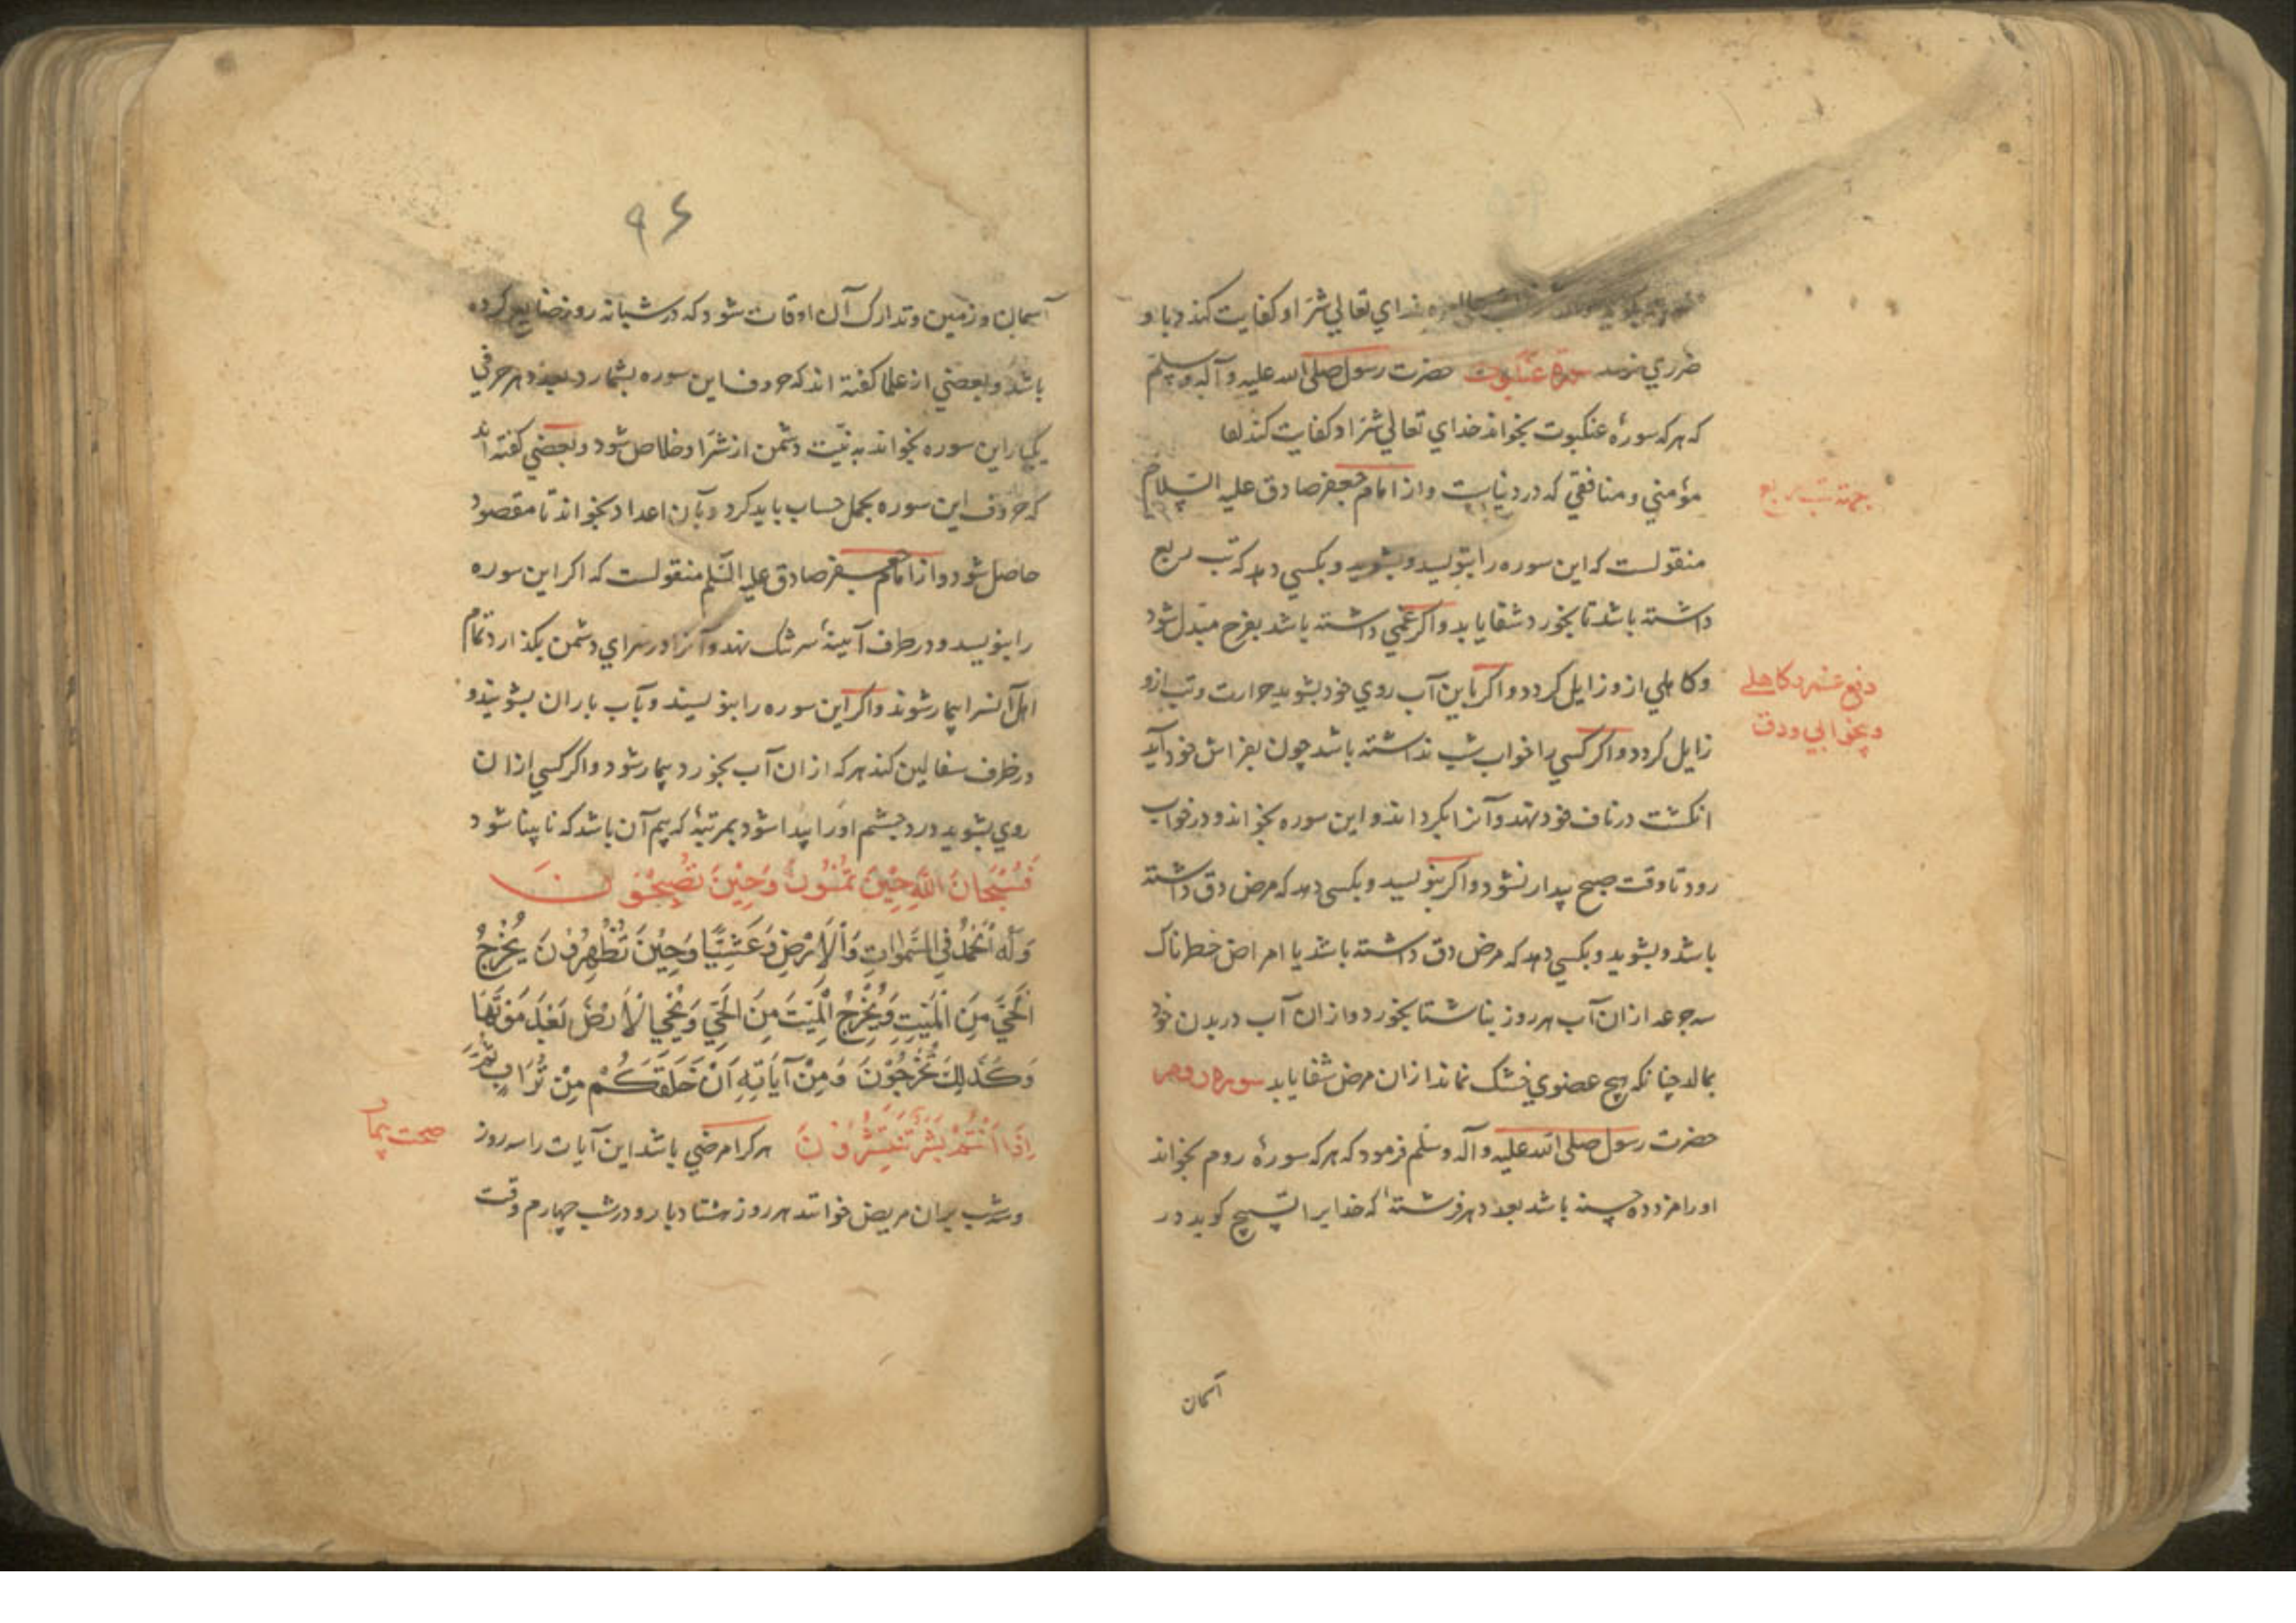 خداي تعالي شر او كفايت كند و با و
ضرري نرسد سوره عنكبوت حضرت رسول صلى الله عليه و آله و سلم
كه هر كه سورۀ عنكبوت بخواند خداي تعالي شر او كفايت كند
مؤمني و منافقي كه در دنياست و از امام جعفر صادق عليه السلام
بجهته تب ربع
منقولست كه اين سوره را بنويسد و بشويد و بكسي دهد كه تب ربع
داشته باشد تا بخورد شفا يابد و اكر غمي داشته باشد بفرح مبدل شود
و كاهلي ازو زايل كردد و اكر باين آب روي خود بشويد حرارت و تب ازو
دفع غم و كاهلي
و بيخوابي و دق
زايل كردد و اكر كسي را خواب شب نداشته باشد چون بفراش خود آيد
انكشت در ناف خود نهد و آنرا بكرداند و اين سوره بخواند و در خواب
رود تا وقت صبح بيدار نشود و اكر بنويسد و بكسي دهد كه مرض دق داشته
باشد و بشويد و بكسي دهد كه مرض دق داشته باشد يا امراض خطرناك
سه جرعه از ان آب هر روز بناشتا بخورد و از ان آب در بدن خود
بمالد چنانكه هيچ عضوي خشك نماند از ان مرض شفا يابد سوره روم
حضرت رسول صلى الله عليه و آله و سلم فرمود كه هر كه سورۀ روم بخواند
او را مزد ده حسنه باشد بعدد هر فرشته كه خدايرا تسبيح كويد در
آسمان
۹۶
آسمان و زمين و تدارك آن اوقات شود كه در شبانه روز ضايع كرده
باشد و بعضي از علما كفته اند كه حروف اين سوره بشمارد و بعدد هر حرفي
يكبار اين سوره بخواند به نيت دشمن از شر او خلاص شود و بعضي كفته اند
كه حروف اين سوره بجمل حساب بايد كرد و بآن اعداد بخواند تا مقصود
حاصل شود و از امام جعفر صادق عليه السلم منقولست كه اكر اين سوره
را بنويسد و در ظرف آبينۀ سر تنك نهد و آنرا در سراي دشمن بكذارد تمام
اهل آنسرا بيمار شوند و اكر اين سوره را بنويسند و بآب باران بشويند و
در ظرف سفالين كند هر كه از ان آب بخورد بيمار شود و اكر كسي از ان
روي بشويد درد چشم او را پيدا شود بمرتبۀ كه بيم آن باشد كه نابينا شود
فَسُبْحَانَ اللَّهِ حِيْنَ تُمْسُوْنَ وَحِيْنَ تُصْبِحُوْنَ
وَلَهُ الْحَمْدُ فِي السَّمَوَاتِ وَالْأَرْضِ وَعَشِيًّا وَحِيْنَ تُظْهِرُوْنَ يُخْرِجُ
الْحَيَّ مِنَ الْمَيِّتِ وَيُخْرِجُ الْمَيِّتَ مِنَ الْحَيِّ وَيُحْيِي الْأَرْضَ بَعْدَ مَوْتِهَا
وَكَذَلِكَ تُخْرَجُوْنَ وَمِنْ آيَاتِهِ اَنْ خَلَقَكُمْ مِنْ تُرَابٍ ثُمَّ
اِذَا اَنْتُمْ بَشَرٌ تَنْتَشِرُوْنَ هر كرا مرضي باشد اين آيات را سه روز
صحت بيمار
و سه شب بران مريض خوانند هر روز هشتاد بار و در شب چهارم وقت